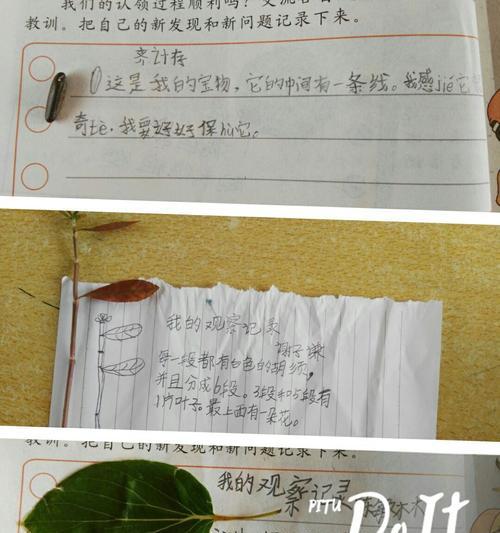 我们的认领过程顺利吗？
教训。把自己的新发现和新问题记录下来。
这是我的宝物，它的中间有一条线。我感jiě它
奇tè，我要好好保hù它。
我的观察记录
谢子谦
每一段都有白色的胡须，
并且分成6段。3段和5段有
1片叶子。最上面有一朵花。
教训。把自己的新发现和新问题记录下来。
我的观察记录
PITU Do It